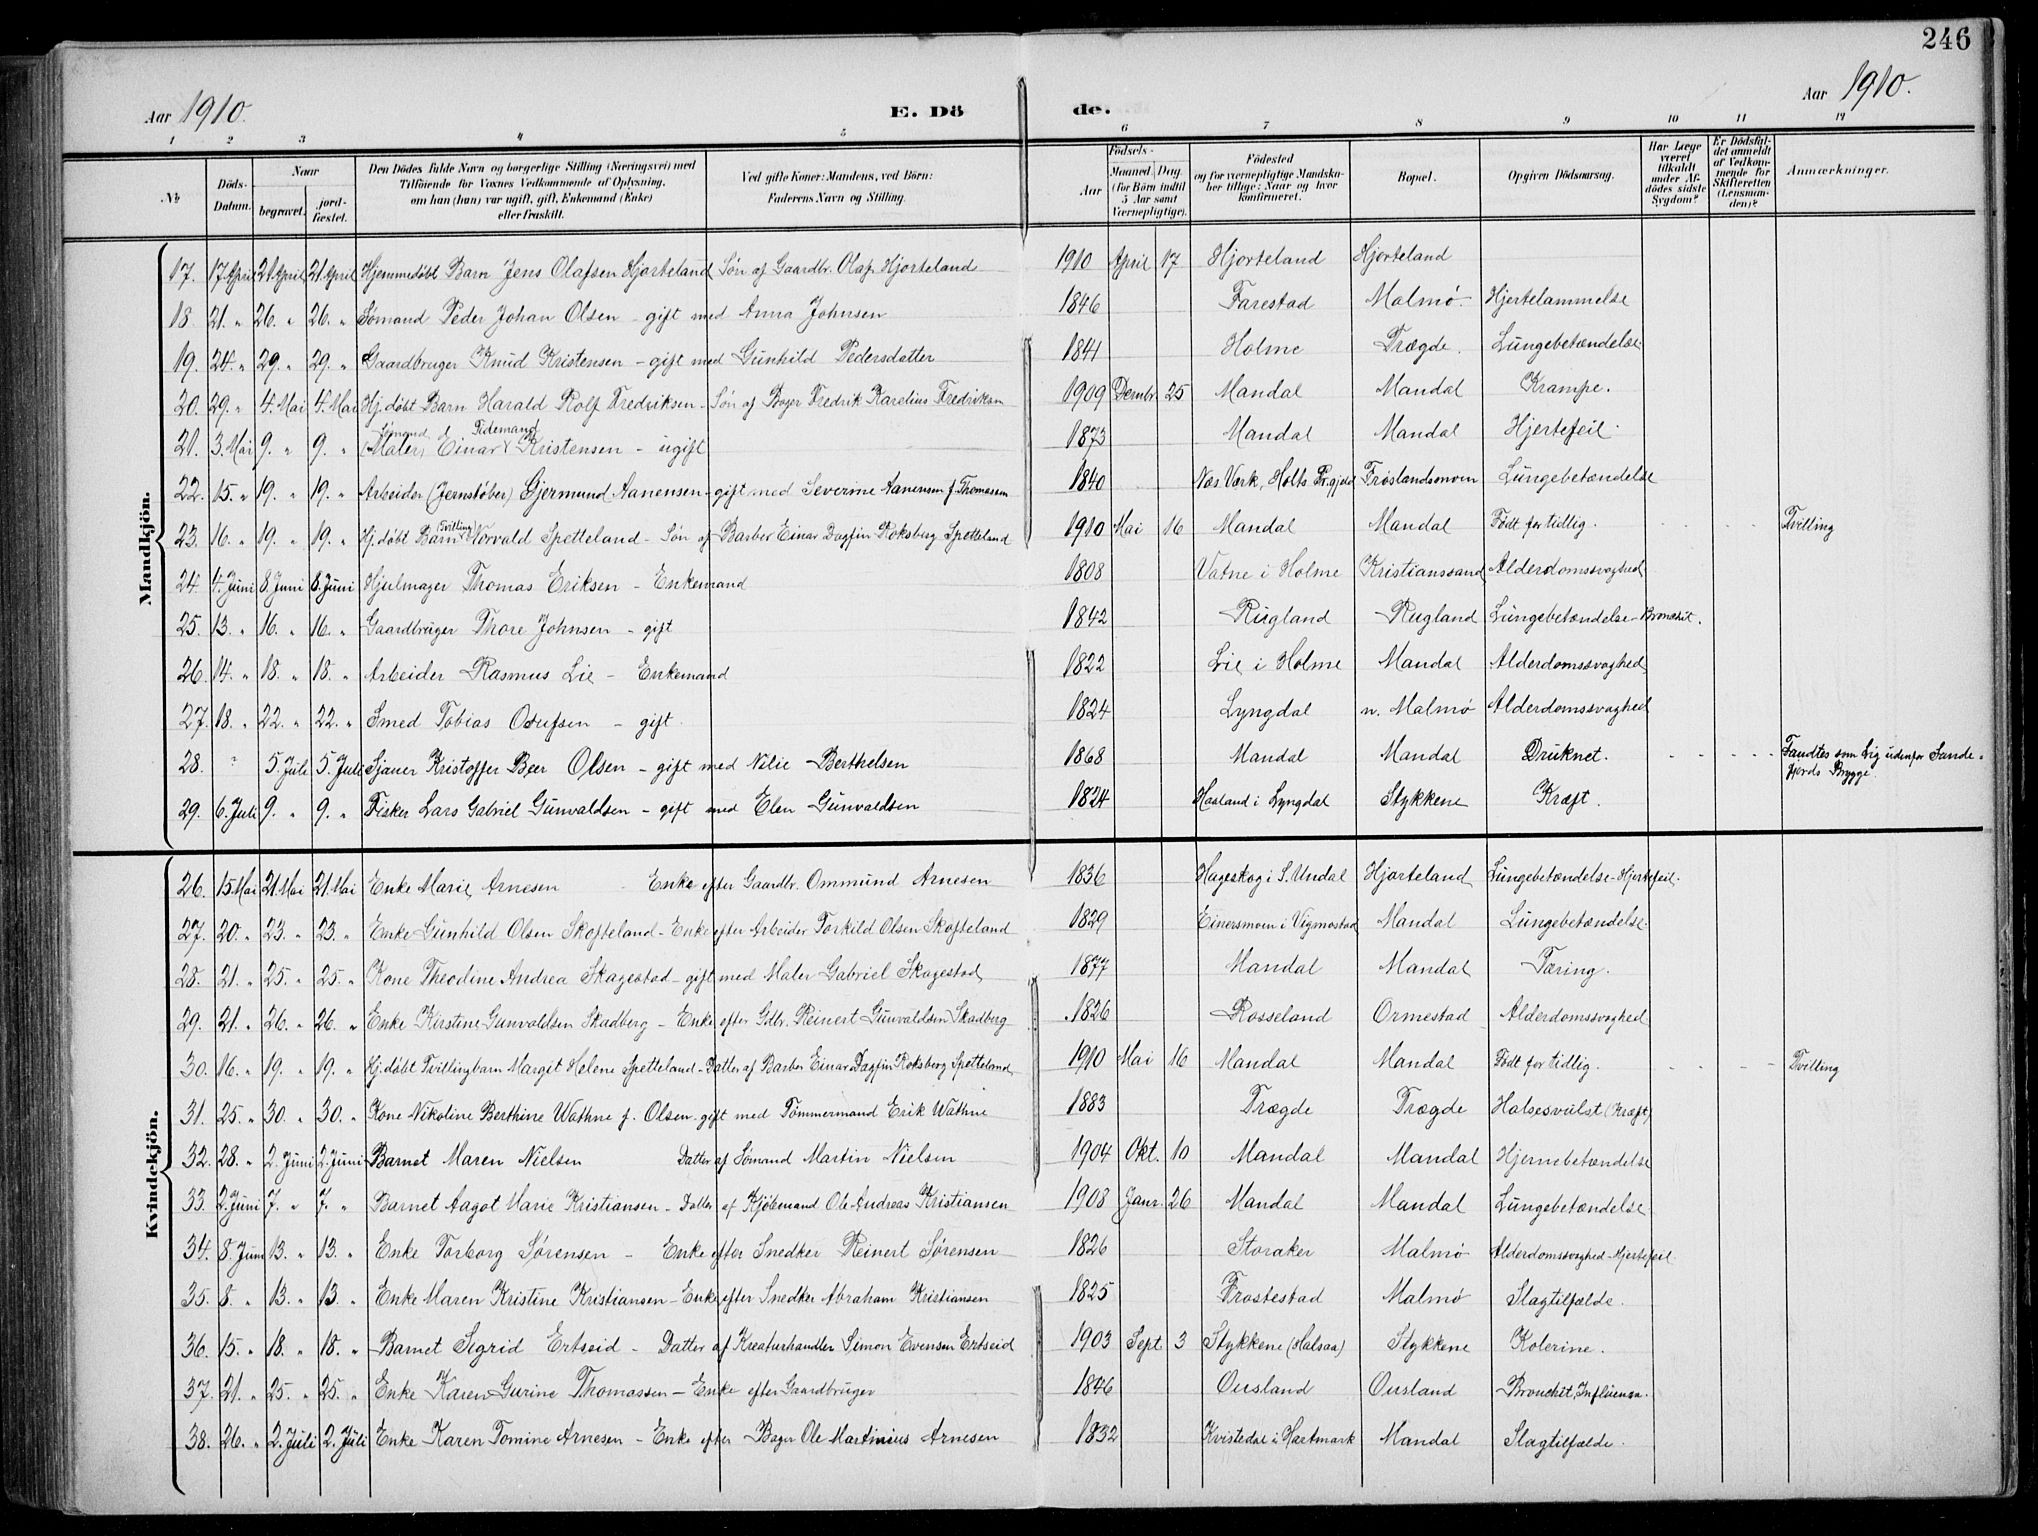 246
Aar 1910.
E. Dö de.
Aar 1910.
1 2 3 4 5 6 7 8 9 10 11 12
№
Döds-Datum.
Naar
begravet.
jord-fæstet.
Den Dödes fulde Navn og borgerlige Stilling (Næringsvei) med
Tilföiende for Voxnes Vedkommende af Oplysning,
om han (hun) var ugift, gift, Enkemand (Enke)
eller fraskilt.
Ved gifte Koner: Mandens, ved Börn:
Faderens Navn og Stilling.
Födsels-
Aar
Maaned Dag
(for Börn indtil
5 Aar samt
Værnepligtige).
Födested
og for værnepligtige Mandska-
ber tillige: Naar og hvor
konfirmeret.
Bopæl.
Opgiven Dödsaarsag.
Har Læge
været
tilkaldt
under Af-
dödes sidste
Sygdom?
Er Dödsfal-
det anmeldt
af Vedkom-
mende for
Skifteretten
(Lensman-
den)?
Anmærkninger.
Mandkjön.
17. 17 April 21 April 21 April Hjemmedøbt Barn Jens Olafsen Hjorteland Søn af Gaardbr. Olaf Hjorteland 1910 April 17 Hjorteland Hjorteland
18 21. " 26. " 26. " Sømand Peder Johan Olsen - gift med Anna Johnsen 1846 Farestad Malmø. Hjertelammelse
19. 24. " 29. " 29. " Gaardbruger Knud Kristensen - gift med Gunhild Pedersdatter 1841 Holme Trægde. Lungebetændelse.
20. 29. " 4. Mai 4. Mai Hj. døbt Barn Harald Rolf Fredriksen - Søn af Bager Fredrik Karelius Fredriksen 1909 Decmbr. 25 Mandal Mandal Krampe.
21. 3. Mai 9. " 9. " Sømand (Maler) Einar Tidemand Kristensen - ugift 1873 Mandal Mandal Hjertefeil.
22. 15. " 19. " 19. " Arbeider (Jernstøber) Gjermund Aanensen - gift med Severine Aanensen f. Thomassen 1840 Næs Værk, Holts Pr.gjeld Frøslandsmoen Lungebetændelse
23. 16. " 19. " 19. " Hj. døbt Barn (Tvilling) Norvald Spetteland - Søn af Barber Einar Dagfin Roksberg Spetteland 1910 Mai 16 Mandal Mandal Født for tidlig. Tvilling
24. 4. Juni 8. Juni 8. Juni Hjulmager Thomas Eriksen - Enkemand 1808 Vatne i Holme Kristianssand Alderdomssvaghed
25. 13. " 16. " 16. " Gaardbruger Thore Johnsen - gift 1842 Rugland Rugland Lungebetændelse - Bronchit.
26. 14. " 18. " 18. " Arbeider Rasmus Lie - Enkemand 1822 Lie i Holme Mandal Alderdomssvaghed
27. 18. " 22. " 22. " Smed Tobias Osufsen - gift. 1824 Lyngdal n. Malmø Alderdomssvaghed
28. ? 5. Juli 5. Juli Sjauer Kristoffer Beer Olsen - gift med Nilie Berthelsen 1868 Mandal Mandal Druknet. Fandtes som Lig udenfor Sande-
fjords Brygge.
29. 6. Juli 9. " 9. " Fisker Lars Gabriel Gunvaldsen - gift med Elen Gunvaldsen 1824 Haaland i Lyngdal Stykkene Kræft.
Kvindekjön.
26. 15 Mai 21 Mai 21 Mai Enke Marie Arnesen Enke efter Gaardbr. Ommund Arnesen 1836 Hageskog i S. Undal Hjorteland Lungebetændelse - Hjertefeil.
27. 20. " 23. " 23. " Enke Gunhild Olsen Skofteland - Enke efter Arbeider Torkild Olsen Skofteland 1829 Einersmoen i Vigmostad Mandal Lungebetændelse.
28. 21. " 25. " 25. " Kone Theodine Andrea Skagestad - gift med Maler Gabriel Skagestad 1877 Mandal Mandal Tæring.
29. 21. " 26. " 26. " Enke Kirstine Gunvaldsen Skadberg - Enke efter Gdbr. Reinert Gunvaldsen Skadberg 1826 Rosseland Ormestad Alderdomssvaghed
30. 16. " 19. " 19. " Hj. døbt Tvillingbarn Margit Helene Spetteland - Datter af Barber Einar Dagfin Roksberg Spetteland 1910 Mai 16 Mandal Mandal Født for tidlig. Tvilling
31. 25. " 30. " 30. " Kone Nikoline Berthine Wathne f. Olsen - gift med Tømmermand Erik Wathne 1883 Trægde Trægde Halsesvulst (Kræft)
32. 28. " 2. Juni 2. Juni Barnet Maren Nielsen Datter af Sømand Martin Nielsen 1904 Okt. 10 Mandal Mandal Hjernebetændelse
33. 2. Juni 7. " 7. " Barnet Aagot Marie Kristiansen - Datter af Kjøbmand Ole Andreas Kristiansen 1908 Janr. 26 Mandal Mandal Lungebetændelse
34. 8. Juni 13. " 13. " Enke Torborg Sørensen - Enke efter Snedker Reinert Sørensen 1826 Storaker Malmø Alderdomssvaghed - Hjertefeil.
35. 8. " 13. " 13. " Enke Maren Kristine Kristiansen - Enke efter Snedker Abraham Kristiansen 1825 Frostestad Malmø Slagtilfælde.
36. 15. " 18. " 18. " Barnet Sigrid Ertseid - Datter af Kreaturhandler Simon Evensen Ertseid 1903 Sept. 3 Stykkene (Halsaa) Stykkene Kolerine.
37. 21. " 25. " 25. " Enke Karen Gurine Thomassen - Enke efter Gaardbruger 1846 Ousland Ousland Bronchit, Influensa.
38. 26. " 2. Juli 2. Juli Enke Karen Tomine Arnesen - Enke efter Bager Ole Martinius Arnesen 1832 Kvistedal i Hartmark Mandal Slagtilfælde.